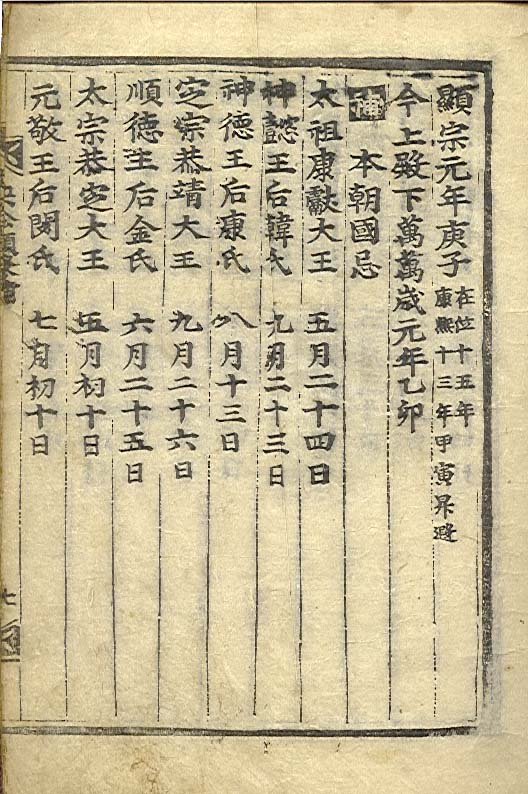 顯宗元年庚子 在位十五年 康熙十三年甲寅昇遐
今上殿下萬萬歲元年乙卯
補 本朝國忌
太祖康獻大王 五月二十四日
神懿王后韓氏 九月二十三日
神德王后康氏 八月十三日
定宗恭靖大王 九月二十六日
順德王后金氏 六月二十五日
太宗恭定大王 五月初十日
元敬王后閔氏 七月初十日
七